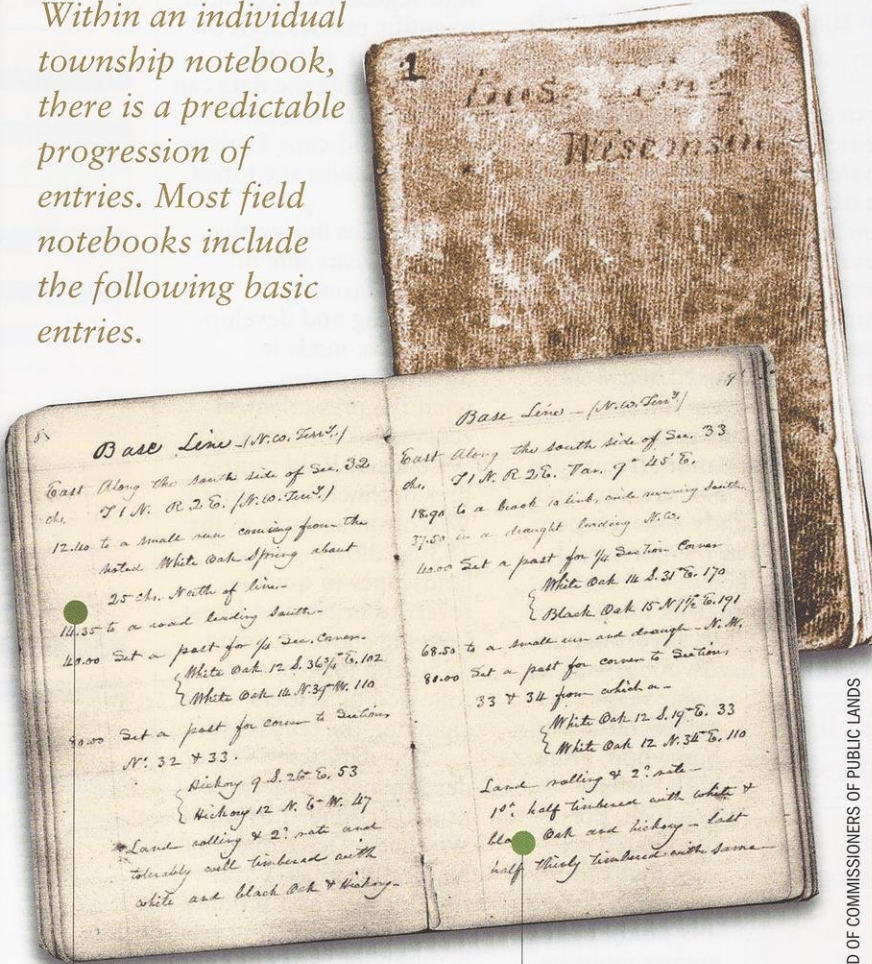 Within an individual
township notebook,
there is a predictable
progression of
entries. Most field
notebooks include
the following basic
entries.
1
Base Line
Wisconsin
8
Base Line – (N.W. Terry.)
East Along the south side of Sec. 32
chs. T 1 N. R 2 E. (N.W. Terry.)
12.40 to a small run coming from the
noted White Oak Spring about
25 chs. North of line–
14.35 to a road leading South–
40.00 Set a post for 1/4 Sec. Corner.
White Oak 12 S. 36 3/4 E. 102
White Oak 14 N. 39 W. 110
80.00 Set a post for corner to Sections
No. 32 & 33.
Hickory 9 S. 26 E. 53
Hickory 12 N. 6 W. 47
Land rolling & 2d. rate and
tolerably well timbered with
white and black Oak & Hickory–
9
Base Line – (N.W. Terry.)
East Along the south side of Sec. 33
chs. T 1 N. R 2 E. Var. 9° 45' E.
18.90 to a brook 10 links wide running South
37.50 in a draught leading N.W.
40.00 Set a post for 1/4 Section Corner
White Oak 14 S. 31 E. 170
Black Oak 15 N 71 1/2 E. 191
68.50 to a small run and draught – N.W.
80.00 Set a post for corner to Sections
33 & 34 from which a–
White Oak 12 S. 19 E. 33
White Oak 12 N. 34 E. 110
Land rolling & 2d. rate–
1st. half timbered with white &
Oak and hickory – last
half thinly timbered with same–
D OF COMMISSIONERS OF PUBLIC LANDS